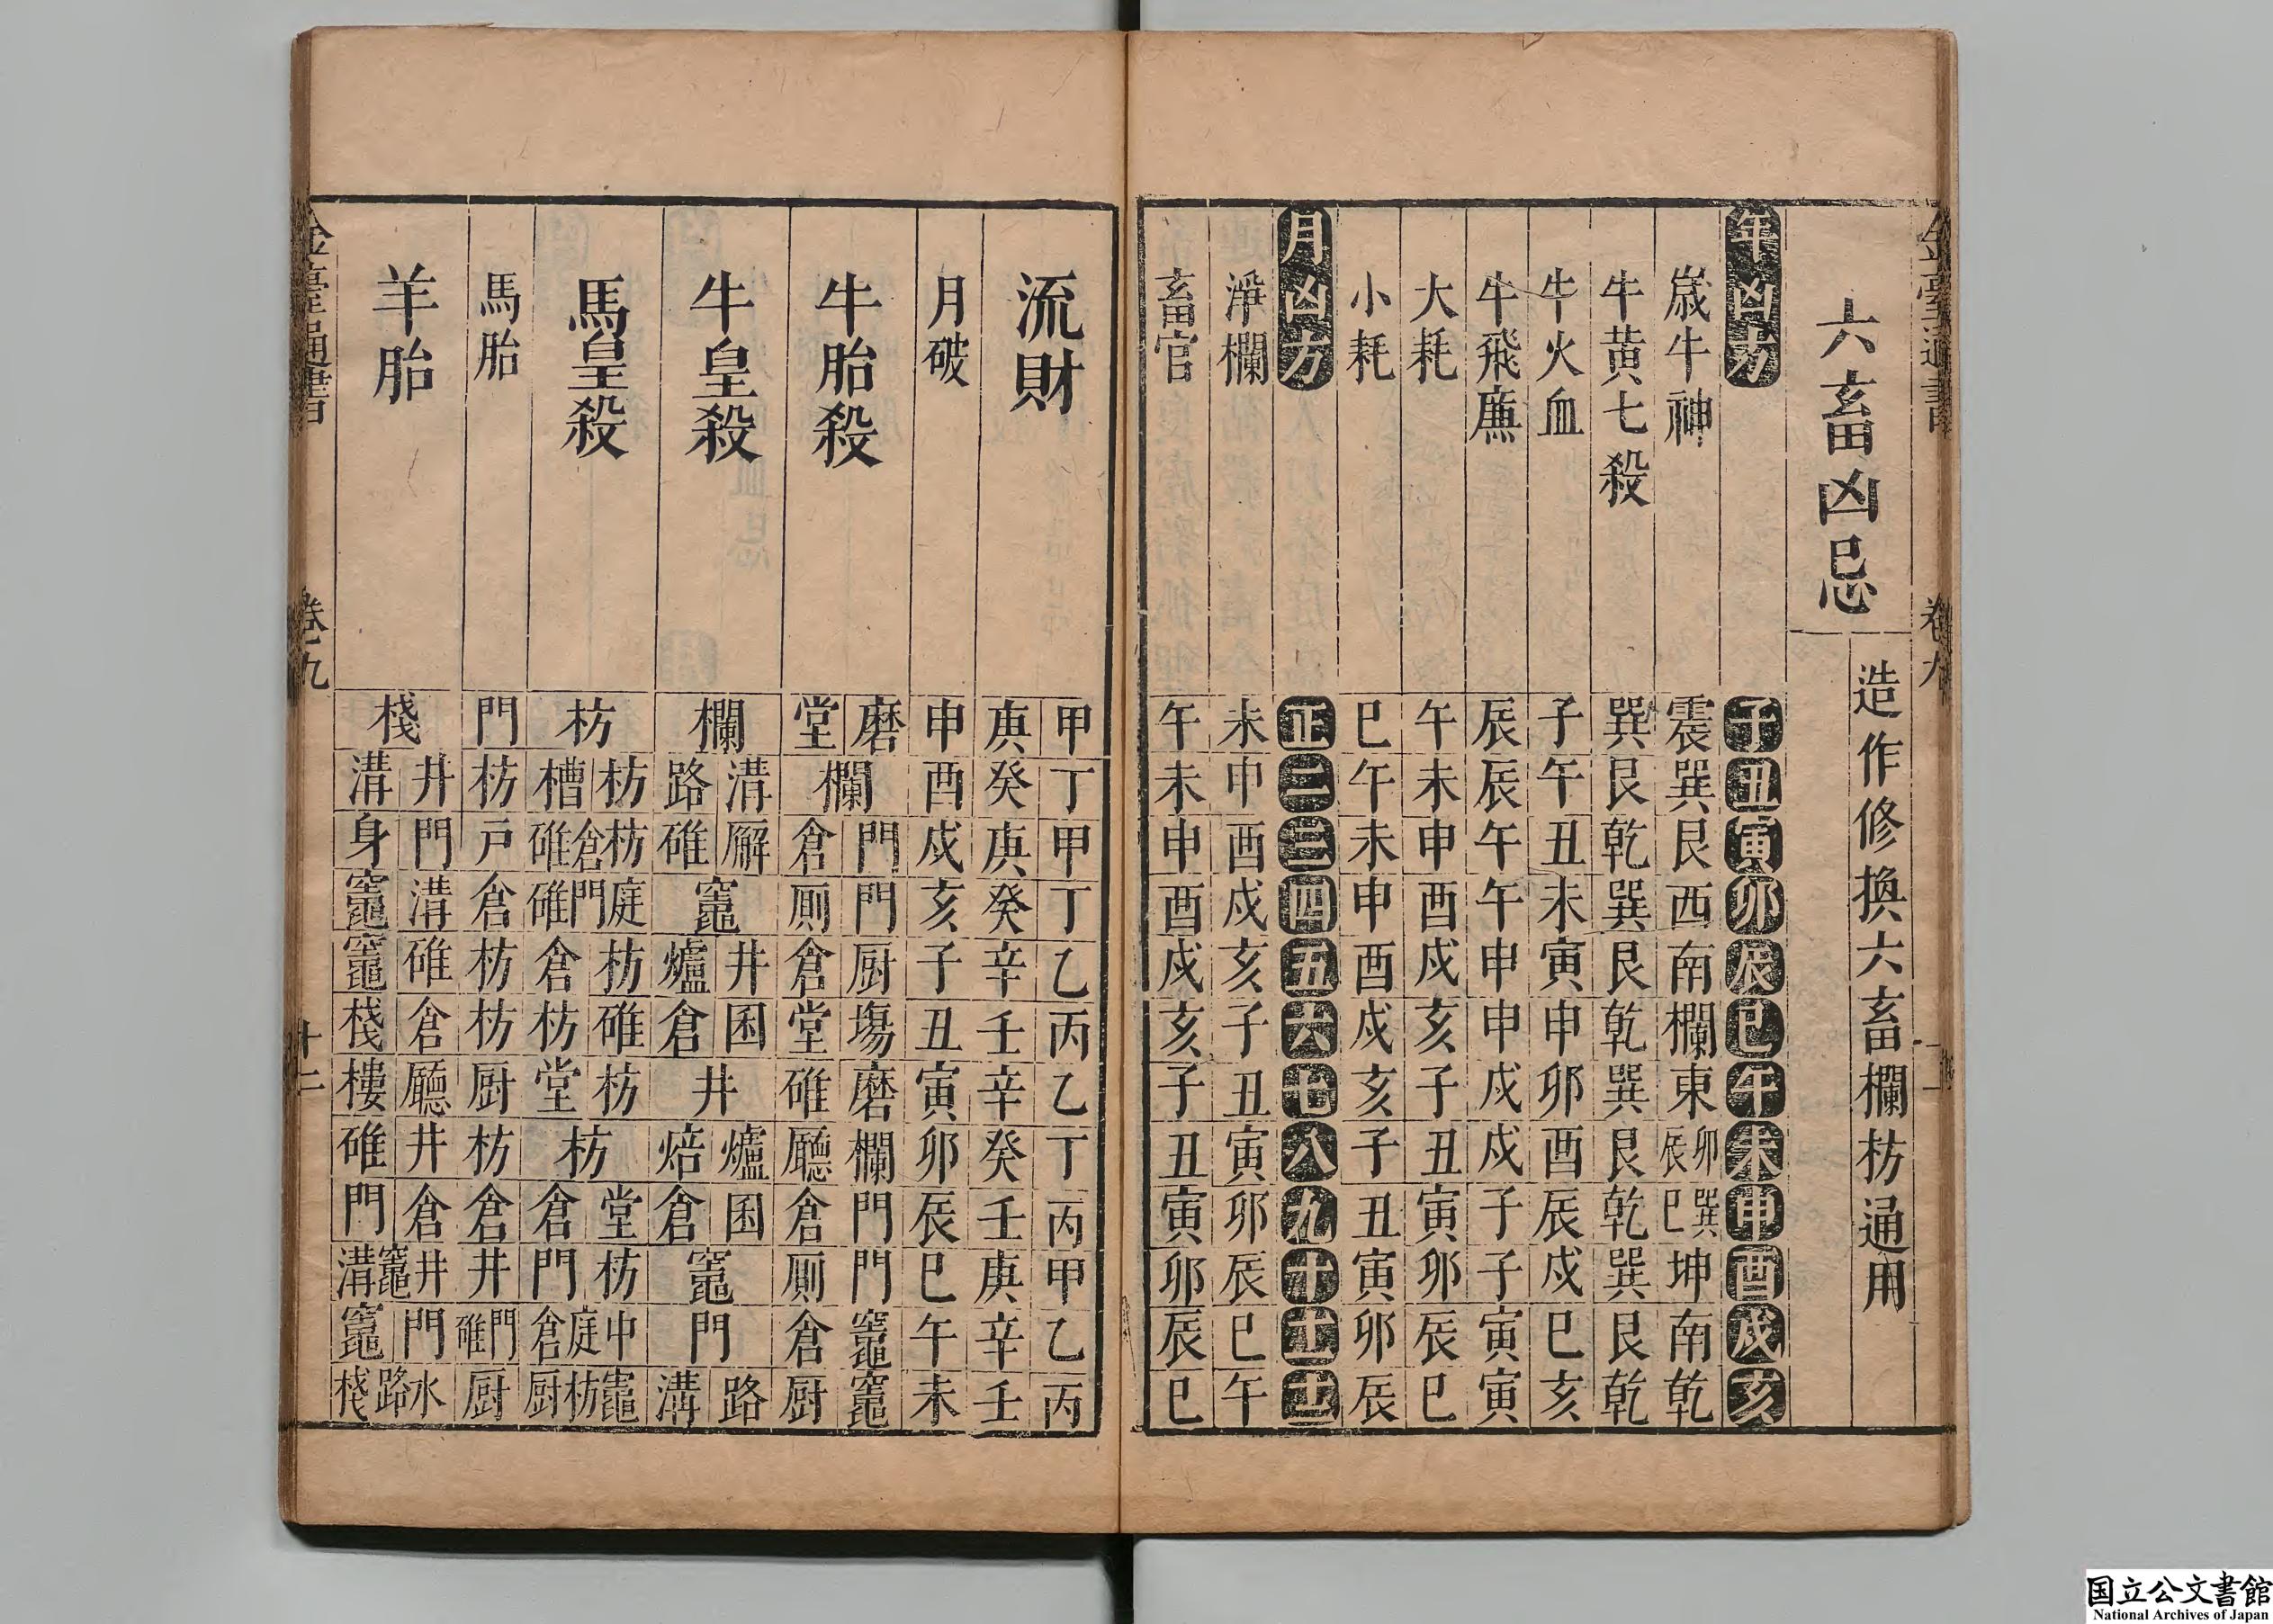 六畜凶忌
造作修換六畜欄枋通用
年凶方 子丑寅卯辰巳午未申酉戌亥
歲牛神 震巽艮西南欄東卯辰巽巳坤南乾
牛黃七殺 巽艮乾巽艮乾巽艮乾巽艮乾
牛火血 子午丑未寅申卯酉辰戌巳亥
牛飛廉 辰辰午午申申戌戌子子寅寅
大耗 午未申酉戌亥子丑寅卯辰巳
小耗 巳午未申酉戌亥子丑寅卯辰
月凶方 正二三四五六七八九十十一十二
淨欄 未申酉戌亥子丑寅卯辰巳午
畜官 午未申酉戌亥子丑寅卯辰巳
流財 甲庚 丁癸 甲庚 丁癸 乙辛 丙壬 乙辛 丁癸 丙壬 甲庚 乙辛 丙壬
月破 申酉戌亥子丑寅卯辰巳午未
牛胎殺 磨堂 欄 門倉 門厠 厨倉 塲堂 磨碓 欄廳 門倉 門厠 竈倉 竈厨
牛皇殺 欄 溝路 廨碓 竈 井爐 囷倉 井 爐焙 囷倉 竈 門 路溝
馬皇殺 枋 枋槽 枋倉碓 庭門碓 枋倉 碓枋 枋堂 枋 堂倉 枋門 中庭倉 竈枋厨
馬胎 門 枋 戸 倉 枋 枋 厨 枋 倉 井 門碓 厨
羊胎 棧 井溝 門身 溝竈 碓竈 倉棧 廳樓 井碓 倉門 井竈溝 門竈 水路棧
卷九
十二
国立公文書館
National Archives of Japan